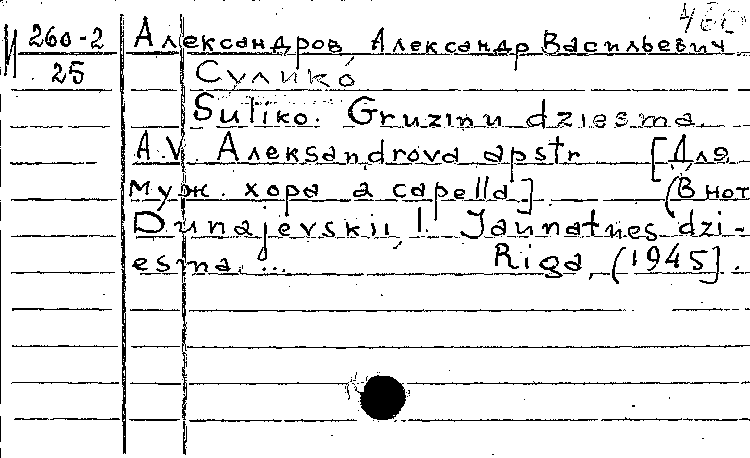 460
И 260-2 Александров, Александр Васильевич
25 Сулико
Suliko. Gruzinu dziesma.
A.V. Aleksandrova apstr [Для
муж. хора a capella]. (В нот
Dunajevskii, I. Jaunatnes dzi-
esma. ... Riga, (1945].